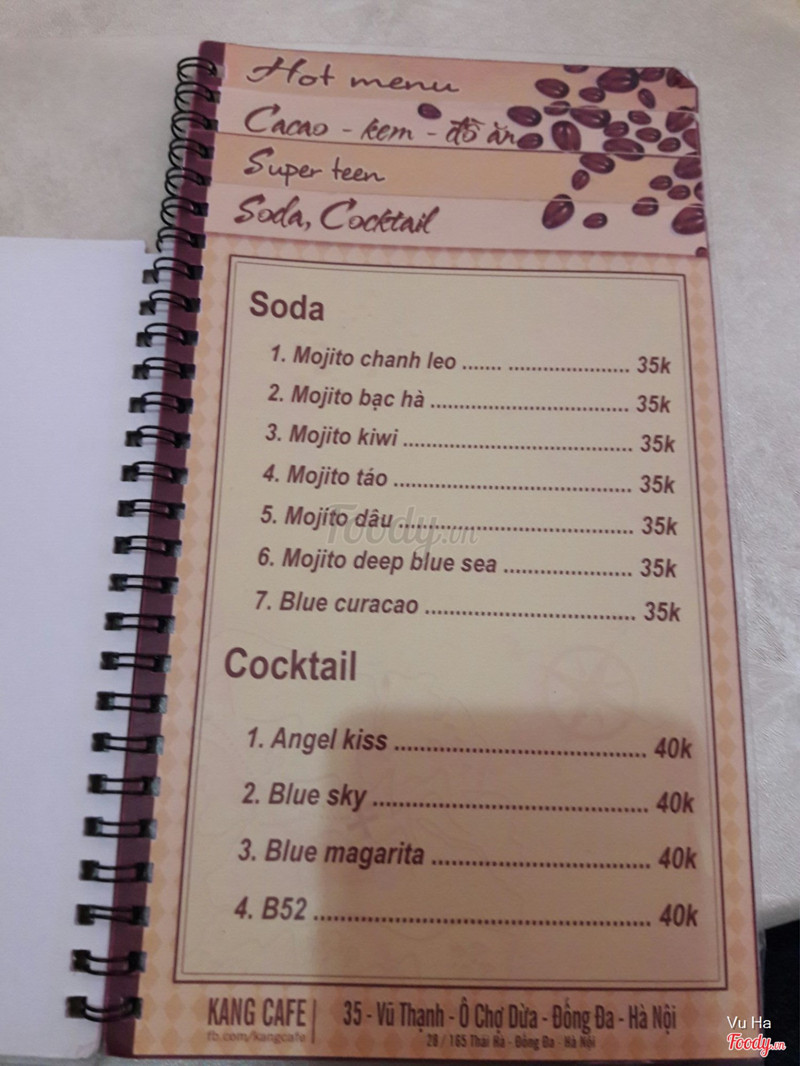 Hot menu
Cacao - kem - đồ ăn
Super teen
Soda, Cocktail
Soda
1. Mojito chanh leo ....... ...................... 35k
2. Mojito bạc hà ................................... 35k
3. Mojito kiwi ........................................ 35k
4. Mojito táo ......................................... 35k
5. Mojito dâu ........................................ 35k
6. Mojito deep blue sea ...................... 35k
7. Blue curacao .................................... 35k
Foody.vn
Cocktail
1. Angel kiss ....................................... 40k
2. Blue sky ........................................... 40k
3. Blue magarita .................................. 40k
4. B52 ................................................... 40k
KANG CAFE | 35 - Vũ Thạnh - Ô Chợ Dừa - Đống Đa - Hà Nội
fb.com/kangcafe 28 / 165 Thái Hà - Đống Đa - Hà Nội
Vu Ha
Foody.vn